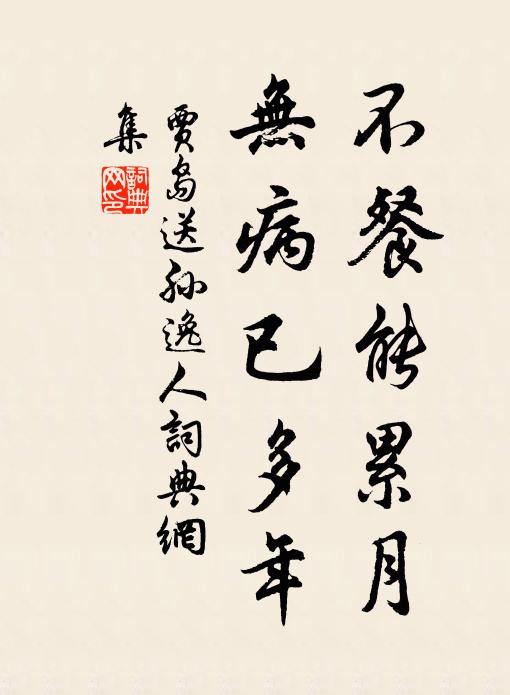 不餐能累月
無病已多年
賈島送孙逸人詞典網
集
詞典网印